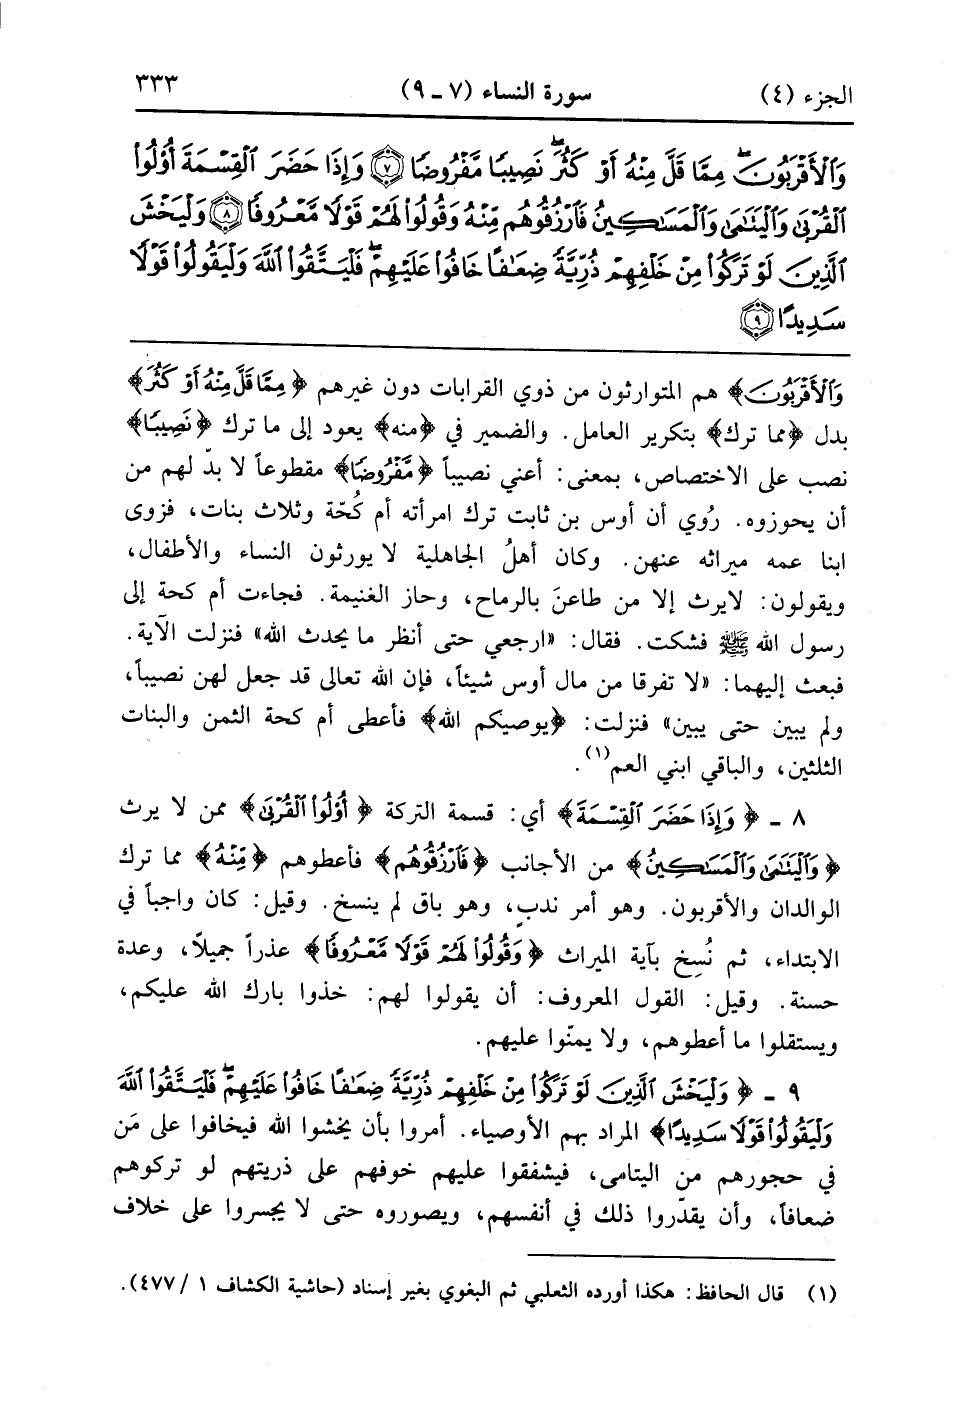 الجزء (٤) سورة النساء (٧ - ٩) ٣٣٣
وَٱلْأَقْرَبُونَ مِمَّا قَلَّ مِنْهُ أَوْ كَثُرَ نَصِيبًا مَّفْرُوضًا ٧ وَإِذَا حَضَرَ ٱلْقِسْمَةَ أُوْلُوا۟
ٱلْقُرْبَىٰ وَٱلْيَتَـٰمَىٰ وَٱلْمَسَـٰكِينُ فَٱرْزُقُوهُم مِّنْهُ وَقُولُوا۟ لَهُمْ قَوْلًا مَّعْرُوفًا ٨ وَلْيَخْشَ
ٱلَّذِينَ لَوْ تَرَكُوا۟ مِنْ خَلْفِهِمْ ذُرِّيَّةً ضِعَـٰفًا خَافُوا۟ عَلَيْهِمْ فَلْيَتَّقُوا۟ ٱللَّهَ وَلْيَقُولُوا۟ قَوْلًا
سَدِيدًا ٩
وَٱلْأَقْرَبُونَ﴾ هم المتوارثون من ذوي القرابات دون غيرهم ﴿مِمَّا قَلَّ مِنْهُ أَوْ كَثُرَ﴾
بدل ﴿مما ترك﴾ بتكرير العامل. والضمير في ﴿منه﴾ يعود إلى ما ترك ﴿نَصِيبًا﴾
نصب على الاختصاص، بمعنى: أعني نصيباً ﴿مَّفْرُوضًا﴾ مقطوعاً لا بدّ لهم من
أن يحوزوه. رُوي أن أوس بن ثابت ترك امرأته أم كُحّة وثلاث بنات، فزوى
ابنا عمه ميراثه عنهن. وكان أهلُ الجاهلية لا يورثون النساء والأطفال،
ويقولون: لايرث إلا من طاعنَ بالرماح، وحاز الغنيمة. فجاءت أم كحة إلى
رسول الله ﷺ فشكت. فقال: «ارجعي حتى أنظر ما يحدث الله» فنزلت الآية.
فبعث إليهما: «لا تفرقا من مال أوس شيئاً، فإن الله تعالى قد جعل لهن نصيباً،
ولم يبين حتى يبين» فنزلت: ﴿يوصيكم الله﴾ فأعطى أم كحة الثمن والبنات
الثلثين، والباقي ابني العم(١).
٨ - ﴿وَإِذَا حَضَرَ ٱلْقِسْمَةَ﴾ أي: قسمة التركة ﴿أُوْلُوا۟ ٱلْقُرْبَىٰ﴾ ممن لا يرث
﴿وَٱلْيَتَـٰمَىٰ وَٱلْمَسَـٰكِينُ﴾ من الأجانب ﴿فَٱرْزُقُوهُم﴾ فأعطوهم ﴿مِّنْهُ﴾ مما ترك
الوالدان والأقربون. وهو أمر ندبٍ، وهو باق لم ينسخ. وقيل: كان واجباً في
الابتداء، ثم نُسِخ بآية الميراث ﴿وَقُولُوا۟ لَهُمْ قَوْلًا مَّعْرُوفًا﴾ عذراً جميلاً، وعدة
حسنة. وقيل: القول المعروف: أن يقولوا لهم: خذوا بارك الله عليكم،
ويستقلوا ما أعطوهم، ولا يمنّوا عليهم.
٩ - ﴿وَلْيَخْشَ ٱلَّذِينَ لَوْ تَرَكُوا۟ مِنْ خَلْفِهِمْ ذُرِّيَّةً ضِعَـٰفًا خَافُوا۟ عَلَيْهِمْ فَلْيَتَّقُوا۟ ٱللَّهَ
وَلْيَقُولُوا۟ قَوْلًا سَدِيدًا﴾ المراد بهم الأوصياء. أمروا بأن يخشوا الله فيخافوا على مَن
في حجورهم من اليتامى، فيشفقوا عليهم خوفهم على ذريتهم لو تركوهم
ضعافاً، وأن يقدّروا ذلك في أنفسهم، ويصوروه حتى لا يجسروا على خلاف
(١) قال الحافظ: هكذا أورده الثعلبي ثم البغوي بغير إسناد (حاشية الكشاف ١ /٤٧٧).